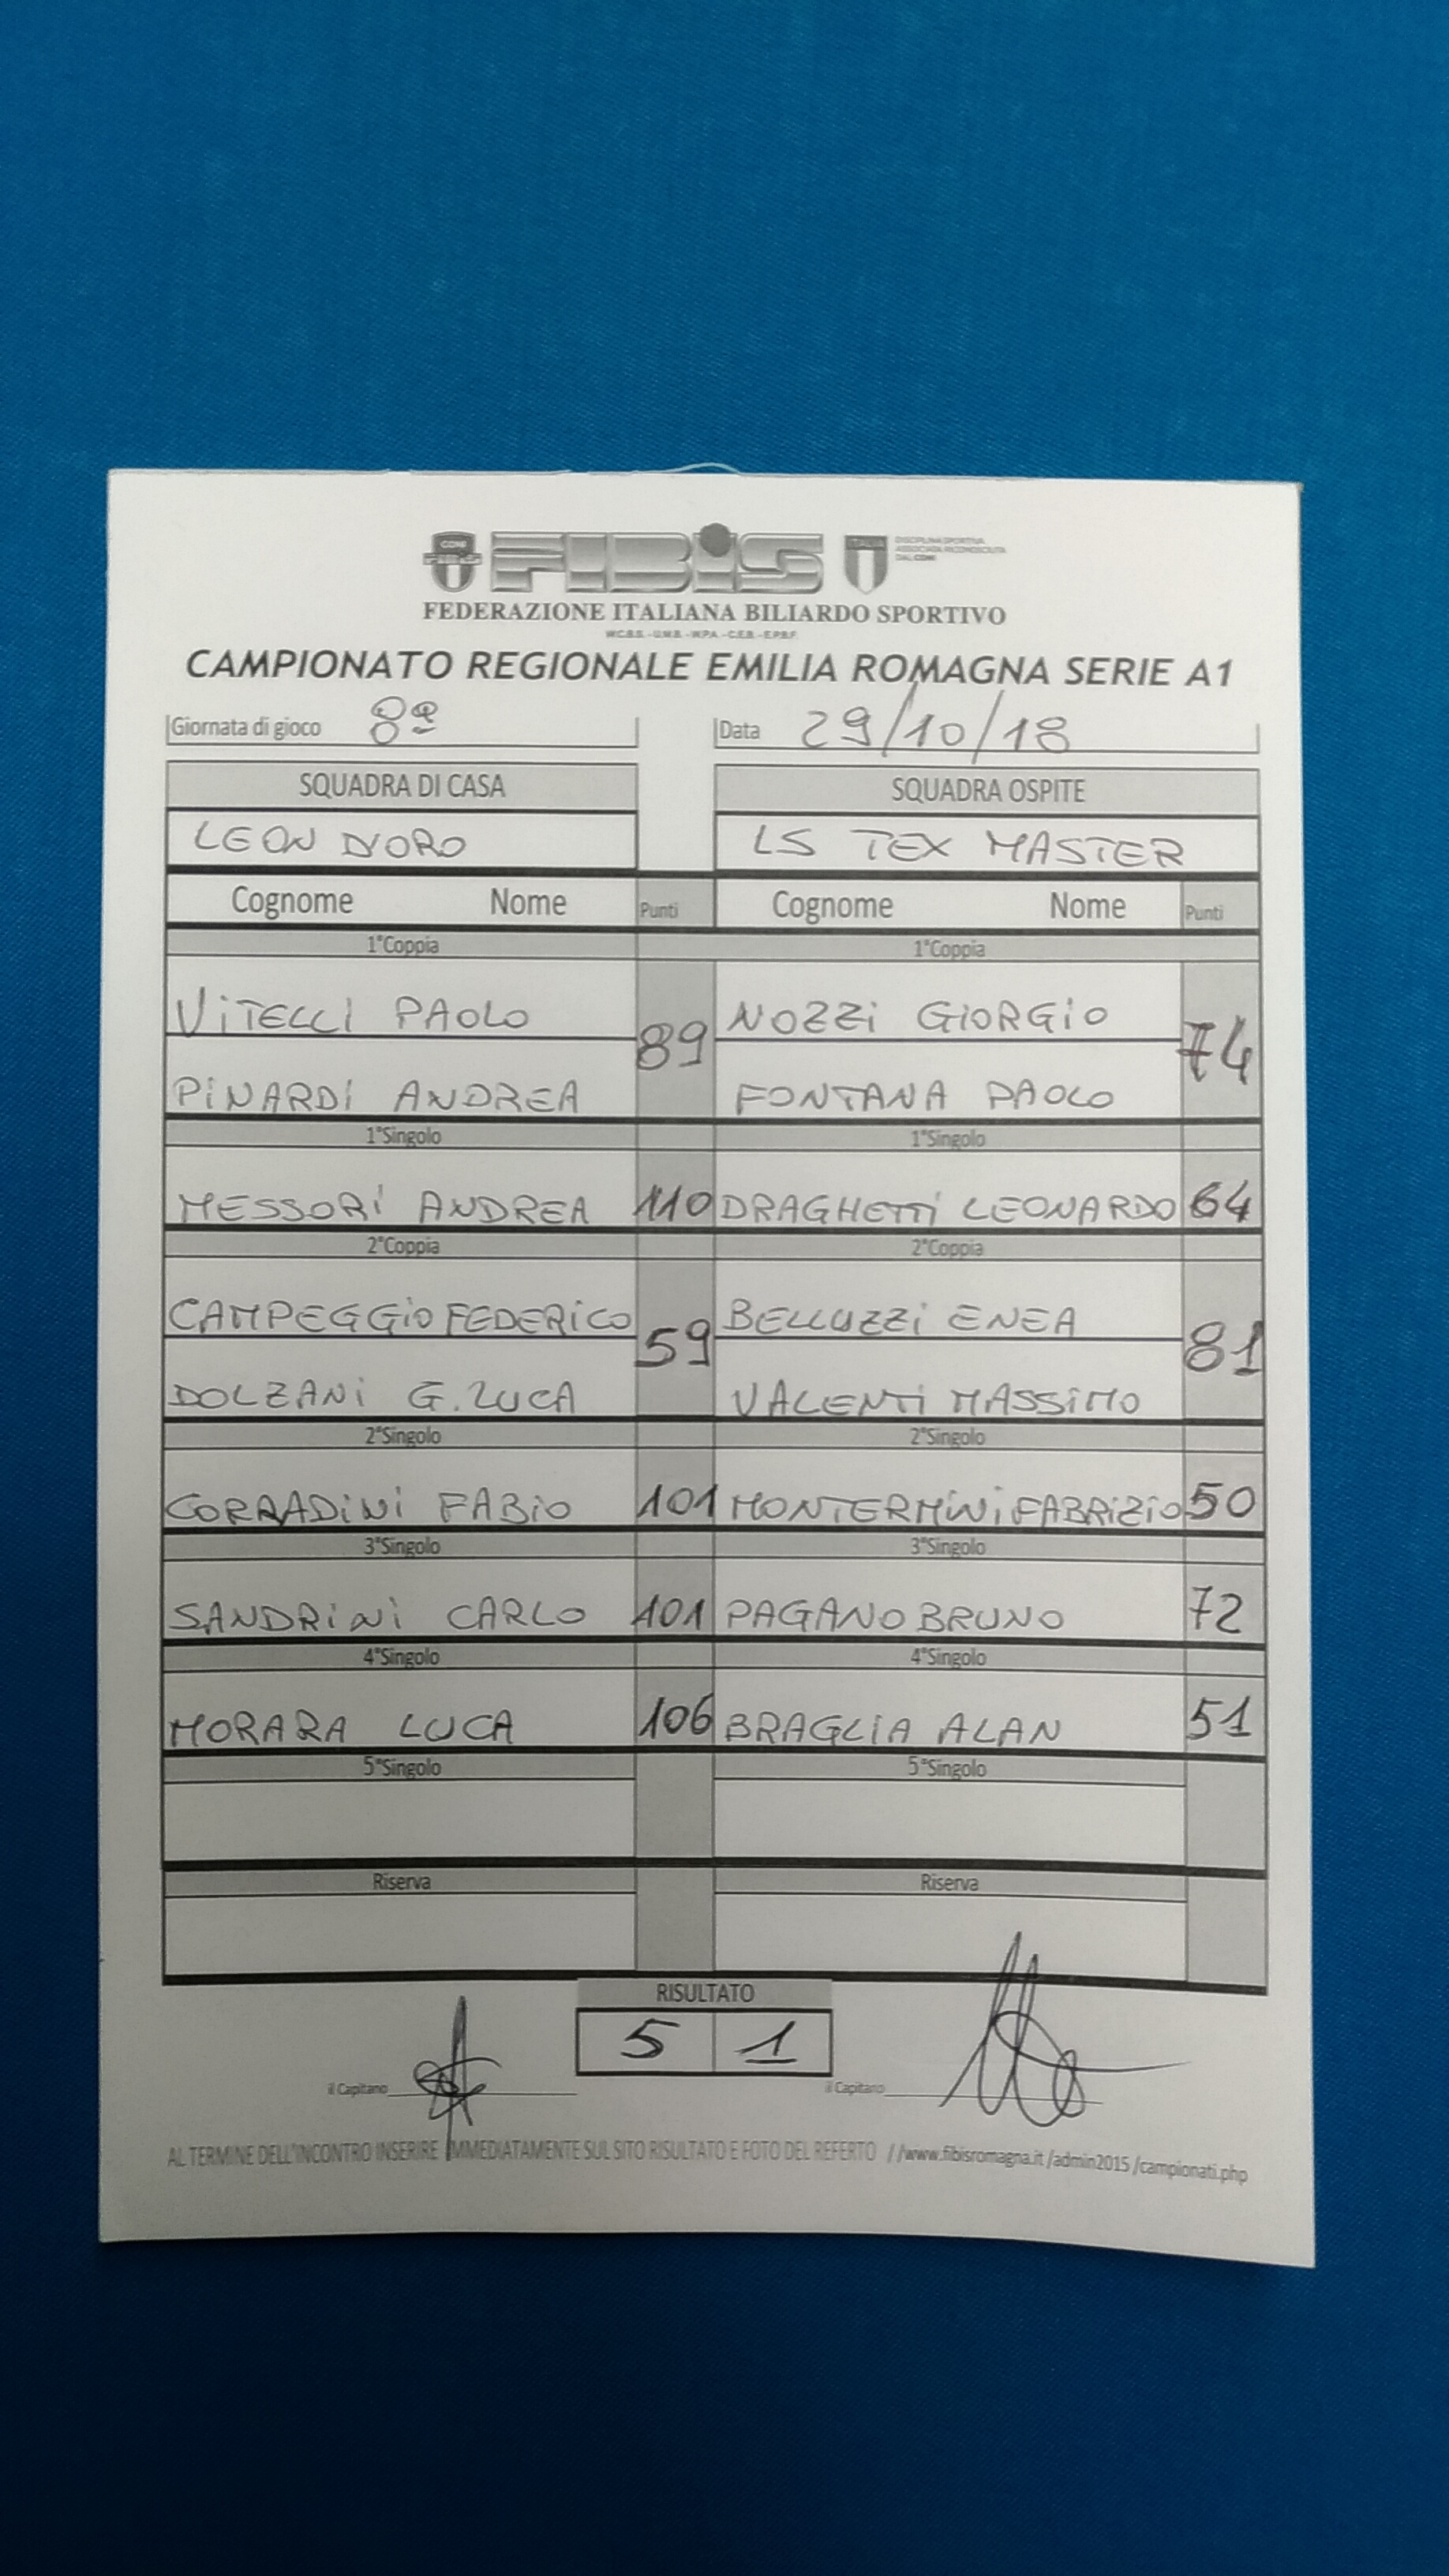 FIBiS
CONI
ITALIA
DISCIPLINA SPORTIVA
ASSOCIATA RICONOSCIUTA
DAL CONI
FEDERAZIONE ITALIANA BILIARDO SPORTIVO
W.C.B.S. - U.M.B. - W.P.A. - C.E.B. - E.P.B.F.
CAMPIONATO REGIONALE EMILIA ROMAGNA SERIE A1
Giornata di gioco 8ª Data 29/10/18
SQUADRA DI CASA SQUADRA OSPITE
LEON D'ORO LS TEX MASTER
Cognome Nome Punti Cognome Nome Punti
1°Coppia 1°Coppia
VITELLI PAOLO NOZZI GIORGIO
89 74
PINARDI ANDREA FONTANA PAOLO
1°Singolo 1°Singolo
MESSORI ANDREA 110 DRAGHETTI LEONARDO 64
2°Coppia 2°Coppia
CAMPEGGIO FEDERICO BELLUZZI ENEA
59 81
DOLZANI G. LUCA VALENTI MASSIMO
2°Singolo 2°Singolo
CORRADINI FABIO 101 MONTERMINI FABRIZIO 50
3°Singolo 3°Singolo
SANDRINI CARLO 101 PAGANO BRUNO 72
4°Singolo 4°Singolo
MORARA LUCA 106 BRAGLIA ALAN 51
5°Singolo 5°Singolo
Riserva Riserva
RISULTATO
5 1
il Capitano il Capitano
AL TERMINE DELL'INCONTRO INSERIRE IMMEDIATAMENTE SUL SITO RISULTATO E FOTO DEL REFERTO //www.fibisromagna.it /admin2015 /campionati.php